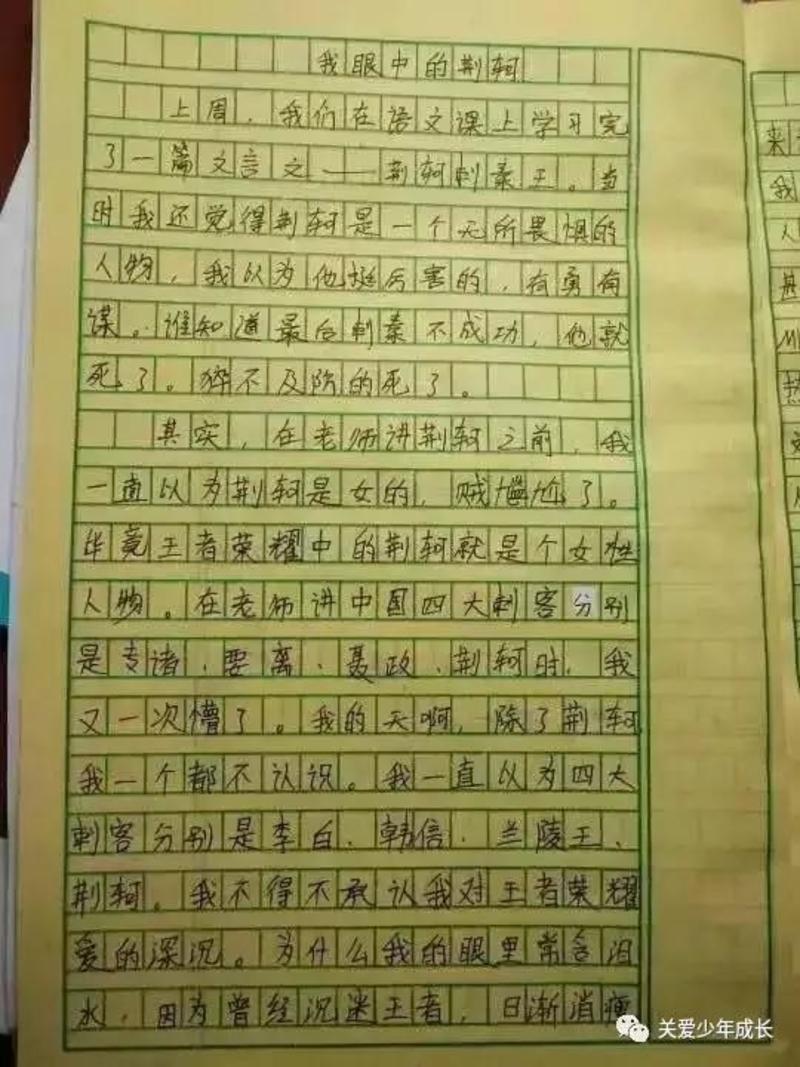 我眼中的荆轲
上周，我们在语文课上学习完
了一篇文言文——荆轲刺秦王。当
时我还觉得荆轲是一个无所畏惧的
人物，我以为他挺厉害的，有勇有
谋。谁知道最后刺秦不成功，他就
死了。猝不及防的死了。
其实，在老师讲荆轲之前，我
一直以为荆轲是女的，贼尴尬了。
毕竟王者荣耀中的荆轲就是个女性
人物。在老师讲中国四大刺客分别
是专诸、要离、聂政、荆轲时，我
又一次懵了。我的天啊，除了荆轲
我一个都不认识。我一直以为四大
刺客分别是李白、韩信、兰陵王、
荆轲。我不得不承认我对王者荣耀
爱的深沉。为什么我的眼里常含泪
水，因为曾经沉迷王者，日渐消瘦
来
我
人
甚
热
关爱少年成长